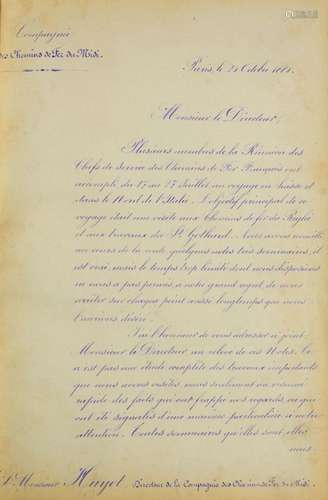 Compagnie
des Chemins de Fer du Midi.
Paris, le 21 Octobre 1881.
Monsieur le Directeur,
Plusieurs membres de la Réunion des
Chefs de Service des Chemins de Fer Français ont
accompli, du 17 au 27 Juillet un voyage en Suisse et
dans le Nord de l'Italie. L'objectif principal de ce
voyage était une visite aux Chemins de fer du Righi
et aux travaux du St Gothard. Nous avons recueilli
au cours de la route quelques notes très sommaires, il
est vrai, mais le temps trop limité dont nous disposions
ne nous a pas permis à notre grand regret de nous
arrêter sur chaque point aussi longtemps que nous
l'aurions désiré.
J'ai l'honneur de vous adresser ci-joint
Monsieur le Directeur un relevé de ces Notes. Ce
n'est pas une étude complète des travaux importants
que nous avons visités, mais seulement un résumé
rapide des faits qui ont frappé nos regards ou qui
ont été signalés d'une manière particulière à notre
attention. Toutes sommaires qu'elles sont, elles
nous
Monsieur Huyot Directeur de la Compagnie des Chemins de Fer du Midi.